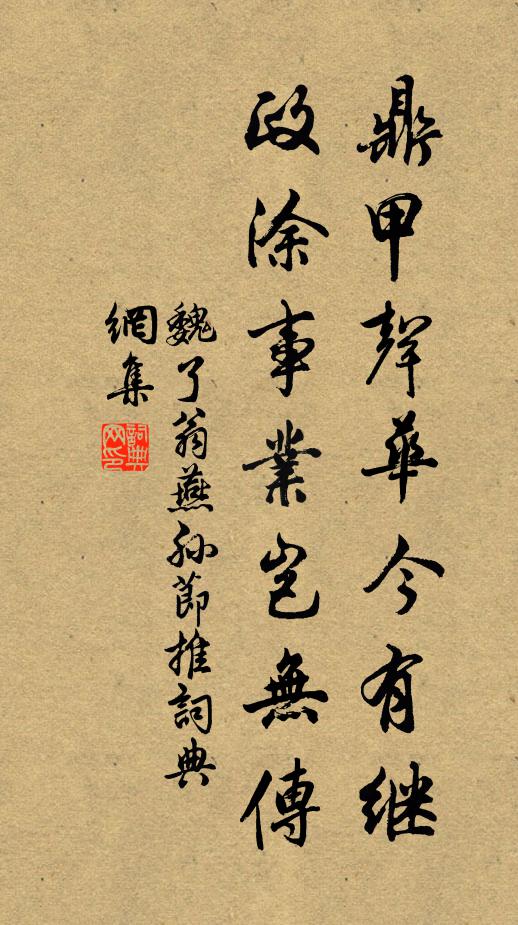 鼎甲聲華今有继
政涂事業岂無傳
魏了翁燕孙節推詞典
網集
詞典
网印